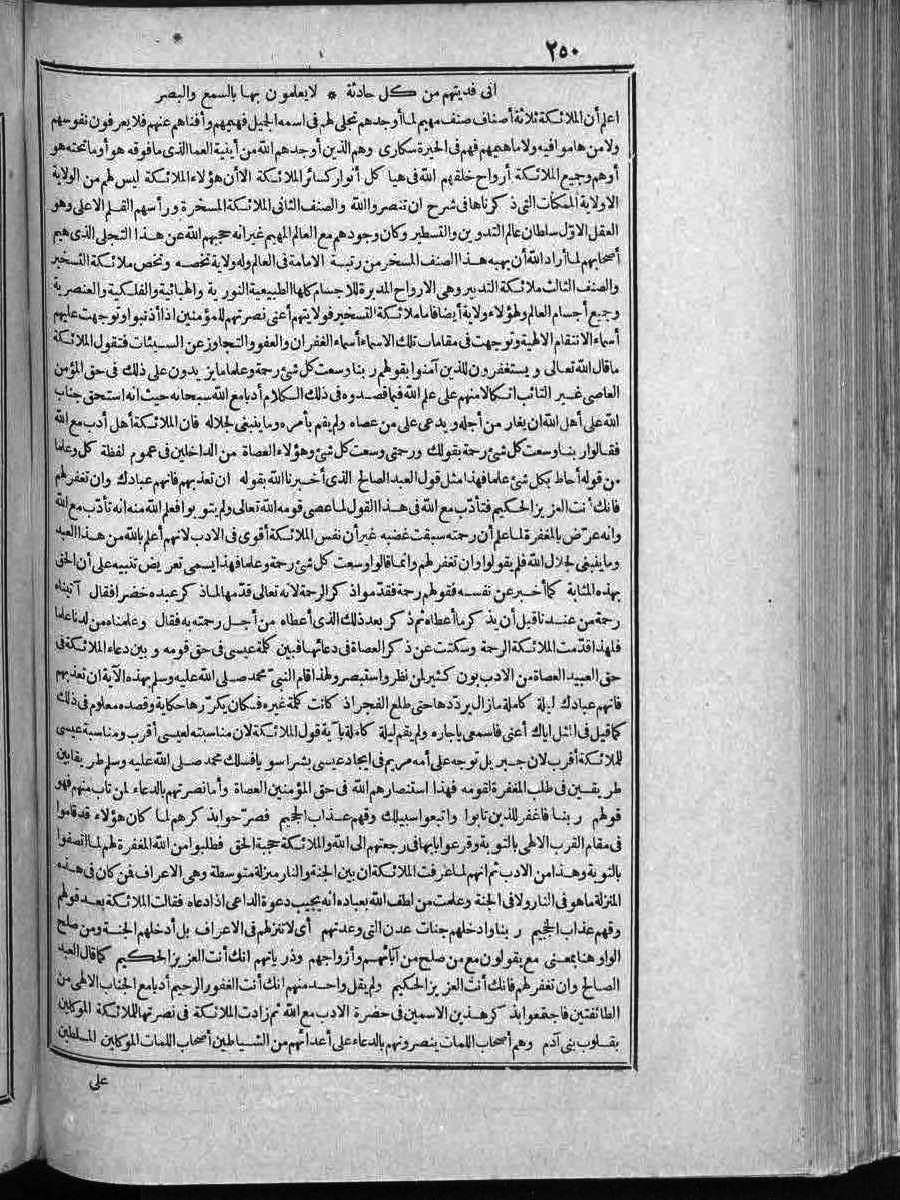 ٢٥٠
انى فديتهم من كل حادثة * لا يعلمون بها بالسمع والبصر
اعلم أن الملائكة ثلاثة أصناف صنف مهيم لما أوجدهم تجلى لهم فى اسمه الجميل فهيمهم وأفناهم عنهم فلا يعرفون نفوسهم
ولا من هاموا فيه ولا ما هيمهم فهم فى الحيرة سكارى وهم الذين أوجدهم الله من أينية العما الذى ما فوقه هو أو ما تحته هو
أوهم وجميع الملائكة أرواح خلقهم الله فى هيا كل أنوار كسائر الملائكة الا أن هؤلاء الملائكة ليس لهم من الولاية
الا ولاية الممكنات التى ذكرناها فى شرح ان تنصروا الله والصنف الثانى الملائكة المسخرة ورأسهم القلم الاعلى وهو
العقل الاوّل سلطان عالم التدوين والتسطير وكان وجودهم مع العالم المهيم غير انه حجبهم الله عن هذا التجلى الذى هيم
أصحابهم لما أراد الله أن يهبه هذا الصنف المسخر من رتبة الامامة فى العالم وله ولاية تخصه وتخص ملائكة التسخير
والصنف الثالث ملائكة التدبير وهى الارواح المدبرة للاجسام كلها الطبيعية النورية والهبائية والفلكية والعنصرية
وجميع أجسام العالم ولهؤلاء ولاية أيضا فاما ملائكة التسخير فولايتهم أعنى نصرتهم للمؤمنين اذا أذنبوا وتوجهت عليهم
أسماء الانتقام الالهية وتوجهت فى مقامات تلك الاسماء أسماء الغفران والعفو والتجاوز عن السيئات فتقول الملائكة
ما قال الله تعالى ويستغفرون للذين آمنوا بقولهم ربنا وسعت كل شئ رحمة وعلما ما يزيدون على ذلك فى حق المؤمن
العاصى غير التائب اتكالا منهم على علم الله فيما قصدوه فى ذلك الكلام أدبا مع الله سبحانه حيث انه استحق جناب
الله على أهل الله ان يغار من أجله ويدعى على من عصاه ولم يقم بأمره وما ينبغى لجلاله فان الملائكة أهل أدب مع الله
فقالوا ربنا وسعت كل شئ رحمة بقولك ورحمتى وسعت كل شئ وهؤلاء العصاة من الداخلين فى عموم لفظة كل وعلما
من قوله أحاط بكل شئ علما فهذا مثل قول العبد الصالح الذى أخبرنا الله بقوله ان تعذبهم فانهم عبادك وان تغفر لهم
فانك أنت العزيز الحكيم فتأدّب مع الله فى هذا القول لما عصى قومه الله تعالى ولم يتوبوا فعلم الله منه انه تأدّب مع الله
وانه عرّض بالمغفرة لما علم أن رحمته سبقت غضبه غير أن نفس الملائكة أقوى فى الادب لانهم أعلم بالله من هذا العبد
وما ينبغى لجلال الله فلم يقولوا وان تغفر لهم وانما قالوا وسعت كل شئ رحمة وعلما فهذا يسمى تعريض تنبيه على أن الحق
بهذه المثابة كما أخبر عن نفسه فقولهم رحمة فقدّموا ذكر الرحمة لانه تعالى قدّمها لما ذكر عبده خضرا فقال آتيناه
رحمة من عندنا قبل أن يذكر ما أعطاه ثم ذكر بعد ذلك الذى أعطاه من أجل رحمته به فقال وعلمناه من لدنا علما
فلهذا قدّمت الملائكة الرحمة وسكتت عن ذكر العصاة فى دعائها فبين كلمة عيسى فى حق قومه وبين دعاء الملائكة فى
حق العبيد العصاة من الادب بون كثير لمن نظر واستبصر ولهذا قام النبى محمد صلى الله عليه وسلم بهذه الآية ان تعذبهم
فانهم عبادك ليلة كاملة ما زال يردّدها حتى طلع الفجر اذ كانت كلمة غيره فكان يكرّرها حكاية وقصده معلوم فى ذلك
كما قيل فى المثل اياك أعنى فاسمعى ياجاره ولم يقم ليلة كاملة بآية قول الملائكة لان مناسبته لعيسى أقرب ومناسبة عيسى
للملائكة أقرب لان جبريل توجه على أمه مريم فى ايجاد عيسى بشرا سويا فسلك محمد صلى الله عليه وسلم طريقا بين
طريقين فى طلب المغفرة لقومه فهذا استنصارهم الله فى حق المؤمنين العصاة وأما نصرتهم بالدعاء لمن تاب منهم فهو
قولهم ربنا فاغفر للذين تابوا واتبعوا سبيلك وقهم عذاب الجحيم فصرّحوا بذكرهم لما كان هؤلاء قد قاموا
فى مقام القرب الالهى بالتوبة وقرعوا بابها فى رجعتهم الى الله والملائكة حجبة الحق فطلبوا من الله المغفرة لهم لما اتصفوا
بالتوبة وهذا من الادب ثم انهم لما عرفت الملائكة ان بين الجنة والنار منزلة متوسطة وهى الاعراف فمن كان فى هذه
المنزلة ما هو فى النار ولا فى الجنة وعلمت من لطف الله بعباده انه يجيب دعوة الداعى اذا دعاه فقالت الملائكة بعد قولهم
وقهم عذاب الجحيم ربنا وادخلهم جنات عدن التى وعدتهم أى لا تنزلهم فى الاعراف بل أدخلهم الجنة ومن صلح
الواو هنا بمعنى مع يقولون مع من صلح من آبائهم وأزواجهم وذرياتهم انك أنت العزيز الحكيم كما قال العبد
الصالح وان تغفر لهم فانك أنت العزيز الحكيم ولم يقل واحد منهم انك أنت الغفور الرحيم أدبا مع الجناب الالهى من
الطائفتين فاجتمعوا بذكر هذين الاسمين فى حضرة الادب مع الله ثم زادت الملائكة فى نصرتها للملائكة الموكلين
بقلوب بنى آدم وهم أصحاب اللمات ينصرونهم بالدعاء على أعدائهم من الشياطين أصحاب اللمات الموكلين المسلطين
على